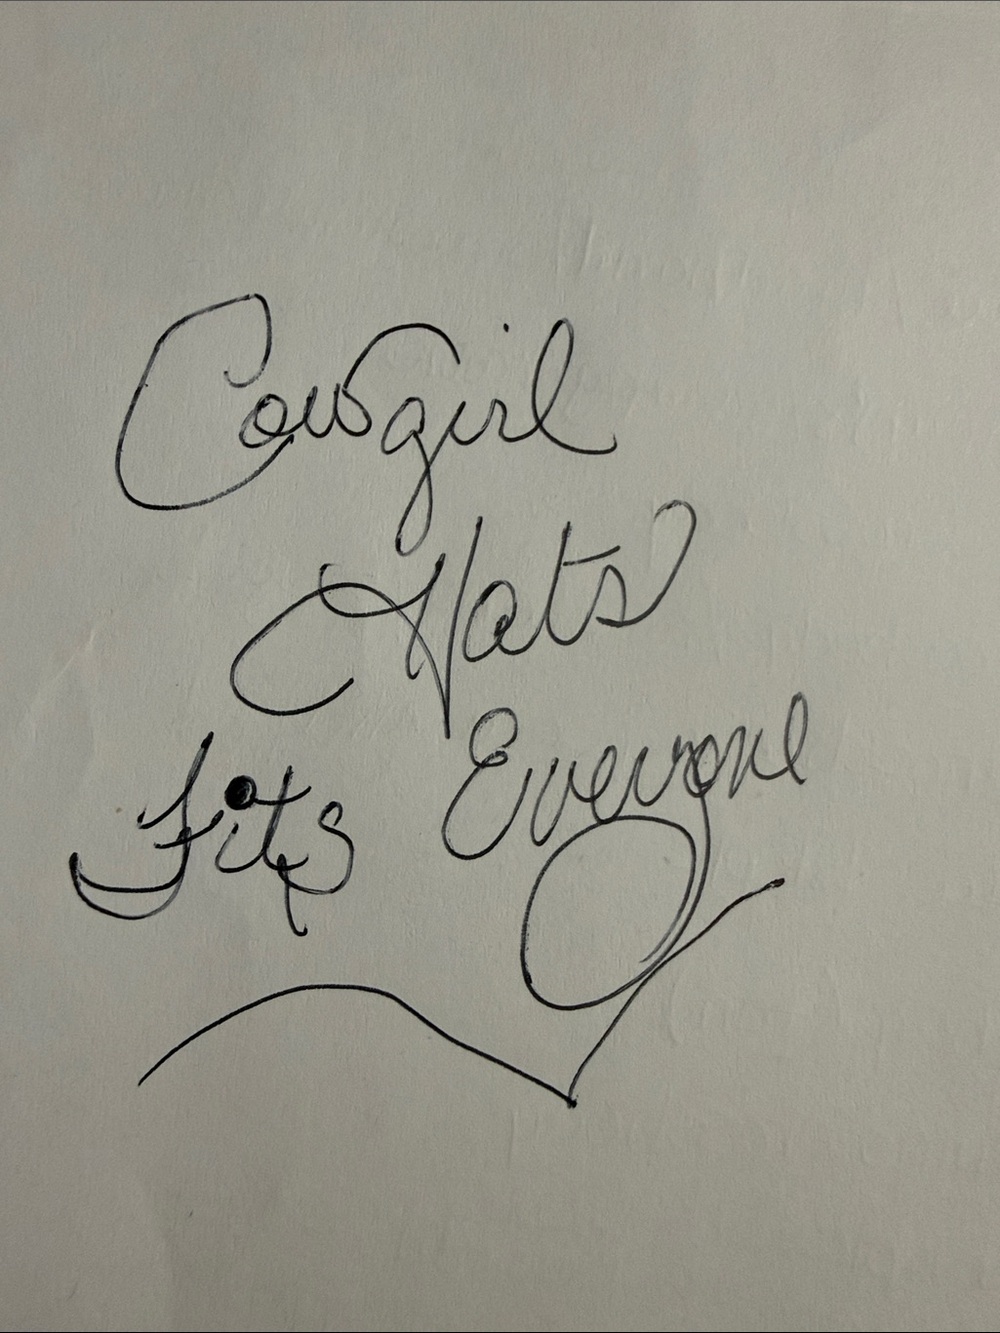 Cowgirl
Hats
Fits Everyone